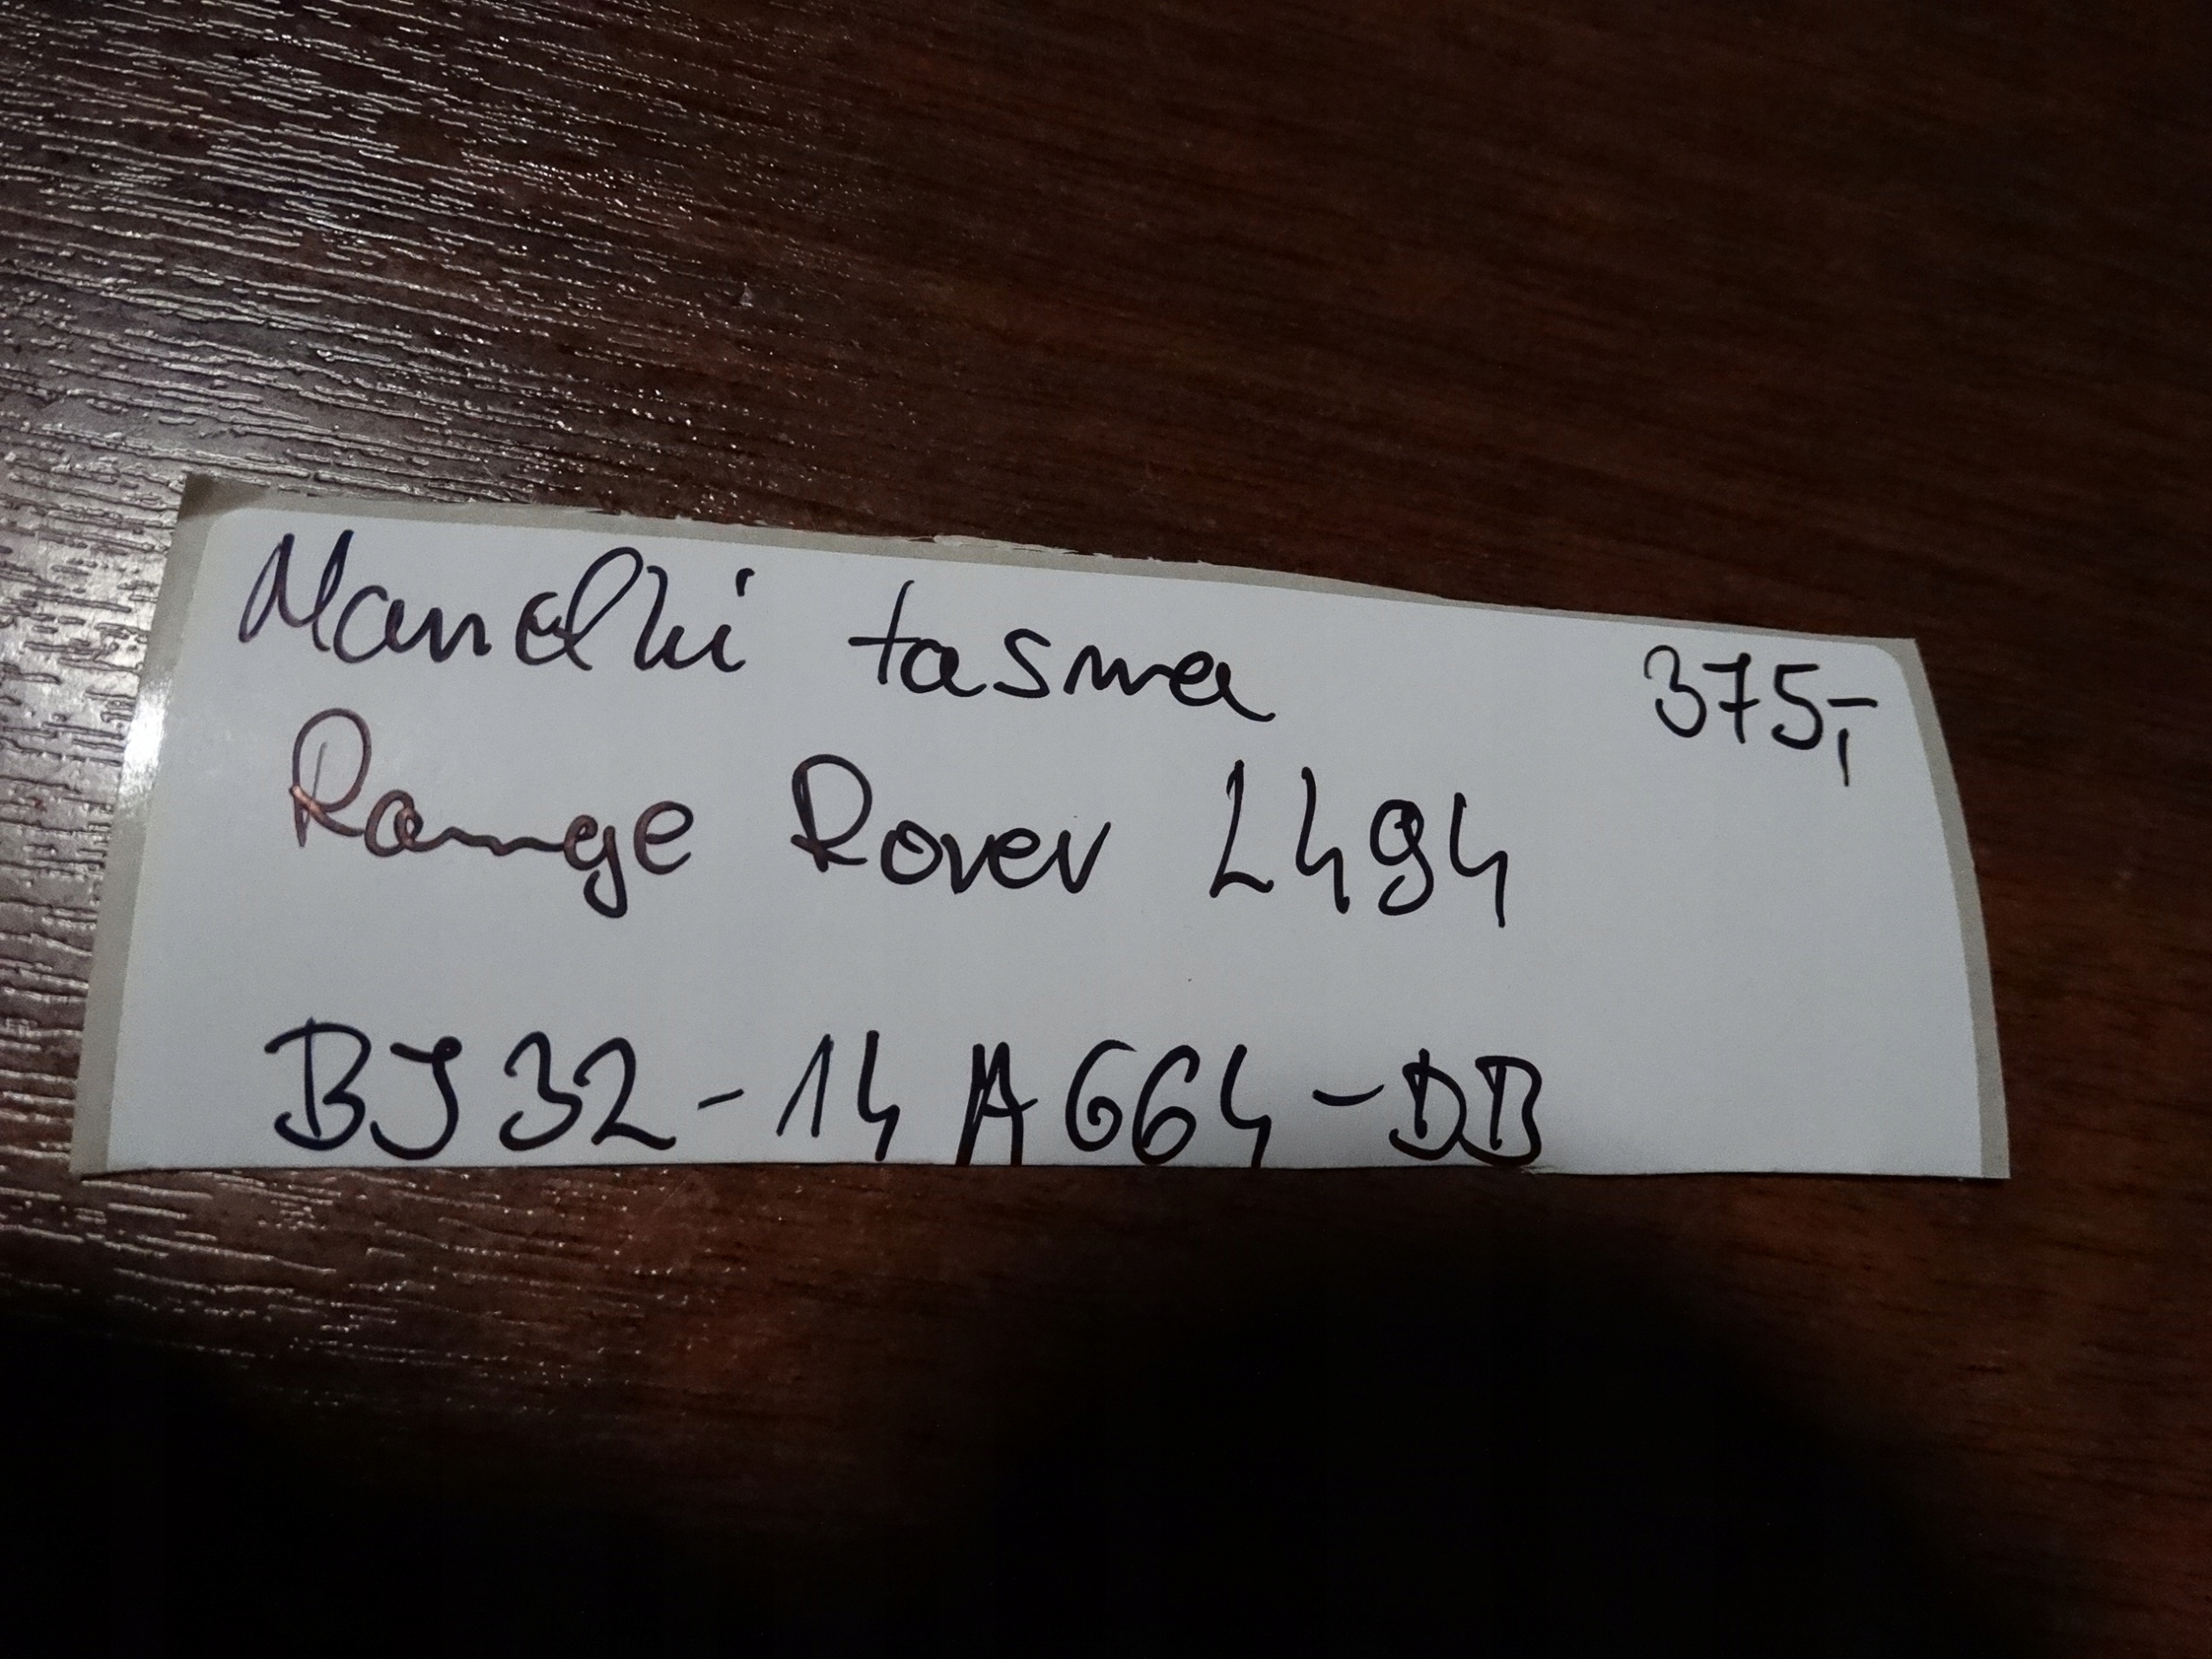 Manetki tasma 375,-
Range Rover L494
BJ32-14A664-DB